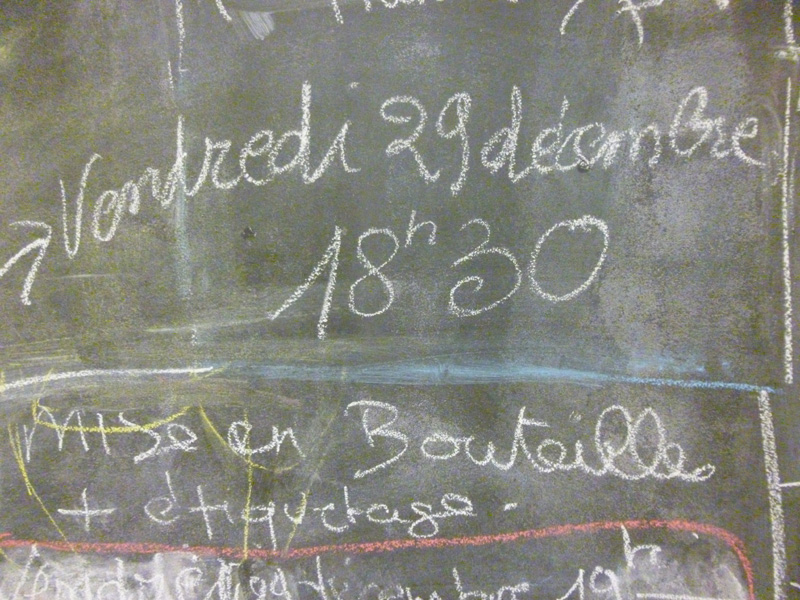 Vendredi 29 décembre
18h30
Mise en Bouteille
+ étiquetage.
décembre 19h